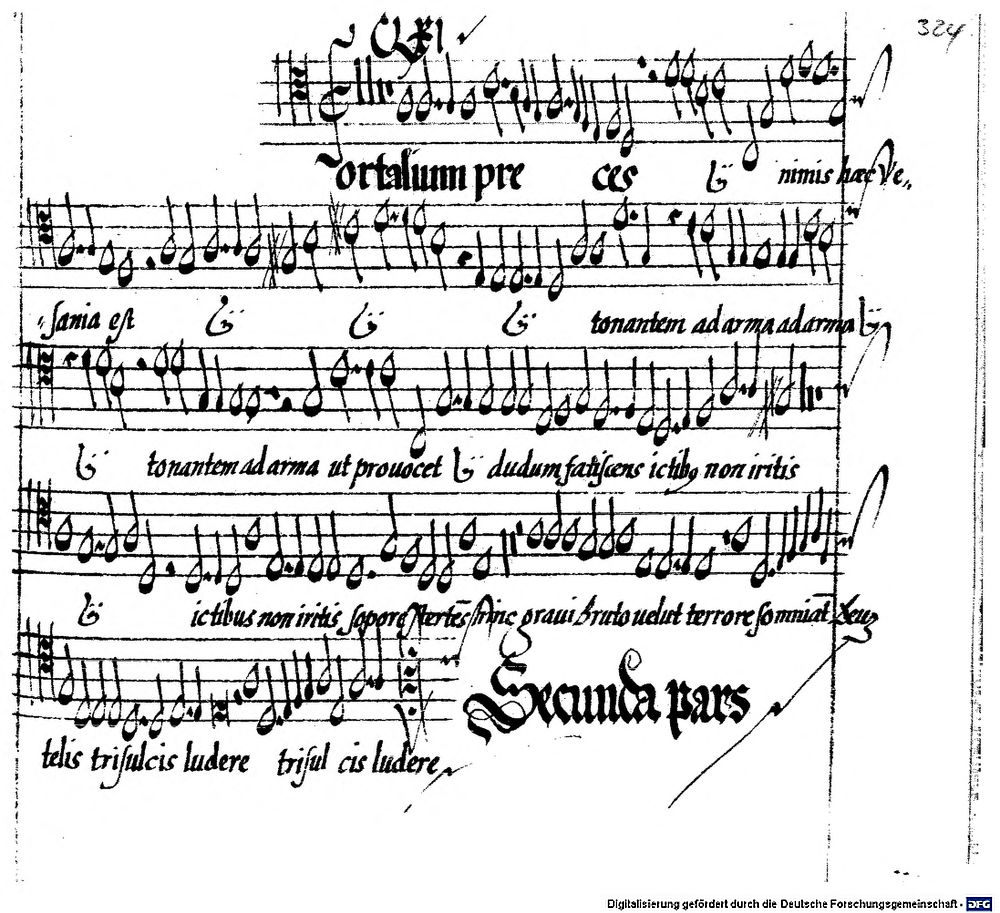 CLXI
324
ortalium pre ces ij nimis hæc Ve,,
"sania est ij ij ij tonantem ad arma ad arma ij
ij tonantem ad arma ut prouocet ij dudum fatiscens ictibꝯ non iritis
ij ictibus non iritis sopore stertẽs hinc graui bruto uelut terrore somniat̃
telis trisulcis ludere trisul cis ludere
Secunda pars
Digitalisierung gefördert durch die Deutsche Forschungsgemeinschaft - DFG